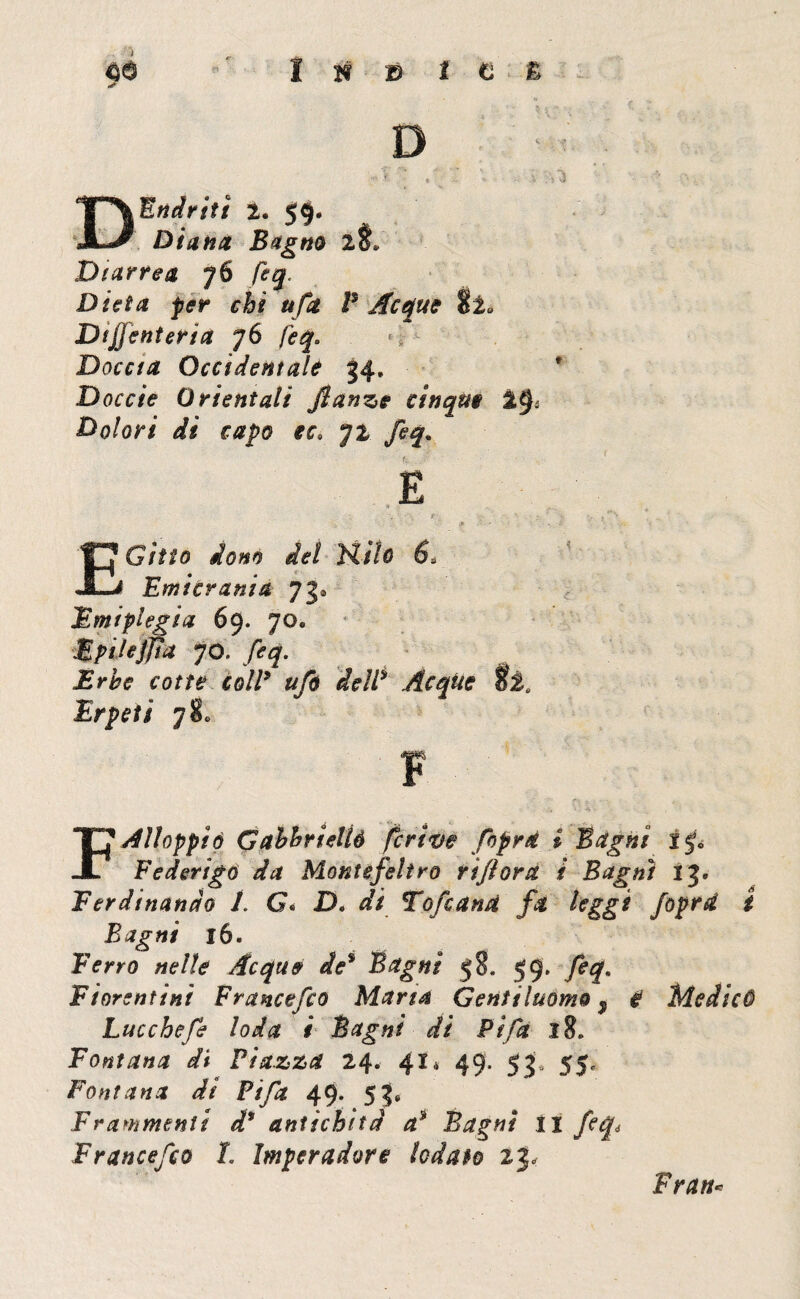 90 INDICE
D
DEndriti 2. 59.
Diana Bagno 28.
Diarrea 76 ſeq.
Dieta per chi uſa l' Acque 82.
Diſſenteria 76 ſeq.
Doccia Occidentale 34.
Doccie Orientali ſtanze cinque 29.
Dolori di capo ec. 72 ſeq.
E
EGitto dono del Nilo 6.
Emicrania 73.
Emiplegia 69. 70.
Epileſſia 70. ſeq.
Erbe cotte coll' uſo dell' Acque 82.
Erpeti 78.
F
FAlloppio Gabbriello ſcrive ſopra i Bagni 15.
Federigo da Montefeltro riſtora i Bagni 13.
Ferdinando I. G. D. di Toſcana fa leggi ſopra i
Bagni 16.
Ferro nelle Acque de' Bagni 58. 59. ſeq.
Fiorentini Franceſco Maria Gentiluomo, e Medico
Luccheſe loda i Bagni di Piſa 18.
Fontana di Piazza 24. 41. 49. 53. 55.
Fontana di Piſa 49. 53.
Frammenti d' antichità a' Bagni 11 ſeq.
Franceſco I. Imperadore lodato 23.
Fran-